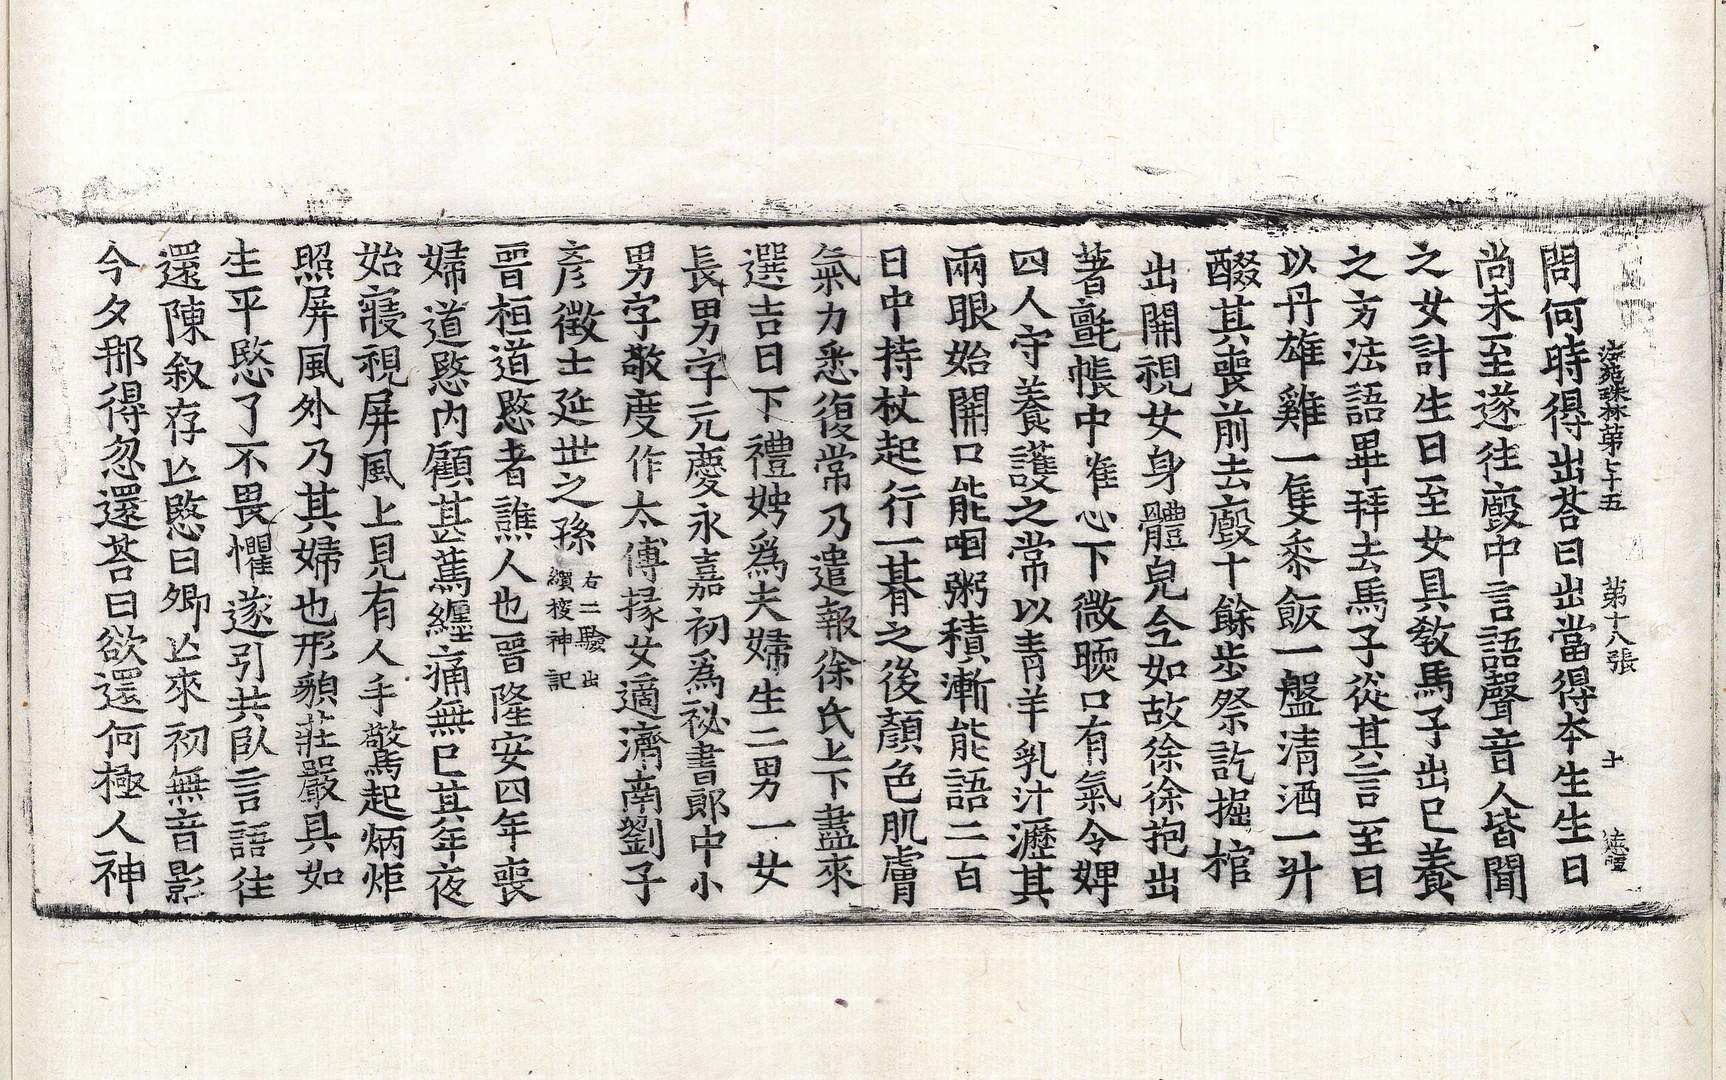 法苑珠林第七十五 第十八張 士
問何時得出荅曰出當得夲生生日
尚未至遂往廄中言語聲音人皆聞
之女計生日至女具教馬子出已養
之方法語畢拜去馬子從其言至日
以丹雄雞一隻黍飯一盤清酒一升
醊其喪前去廄十餘步祭訖掘棺
出開視女身體皃全如故徐徐抱出
著氈帳中唯心下微暖口有氣令婢
四人守養護之常以青羊乳汁瀝其
兩眼始開口能咽粥積漸能語二百
日中持杖起行一朞之後顏色肌膚
氣力悉復常乃遣報徐氏上下盡來
選吉日下禮娉為夫婦生二男一女
長男字元慶永嘉初為祕書郎中小
男字敬度作太傅掾女適濟南劉子
彥徵士延世之孫 右二驗出續搜神記
晉桓道愍者譙人也晉隆安四年喪
婦道愍內顧甚篤纏痛無已其年夜
始寢視屏風上見有人手驚起炳炬
照屏風外乃其婦也形貌莊嚴具如
生平愍了不畏懼遂引共臥言語往
還陳叙存亡愍曰卿亡來初無音影
今夕那得忽還荅曰欲還何極人神